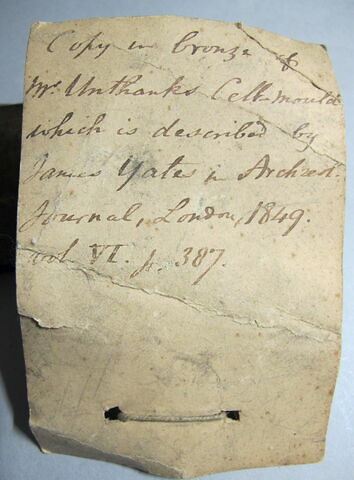 Copy in bronze of
Mr. Unthanks Celt-mould
which is described by
James Yates in Archæol.
Journal, London, 1849.
vol. VI. p. 387.